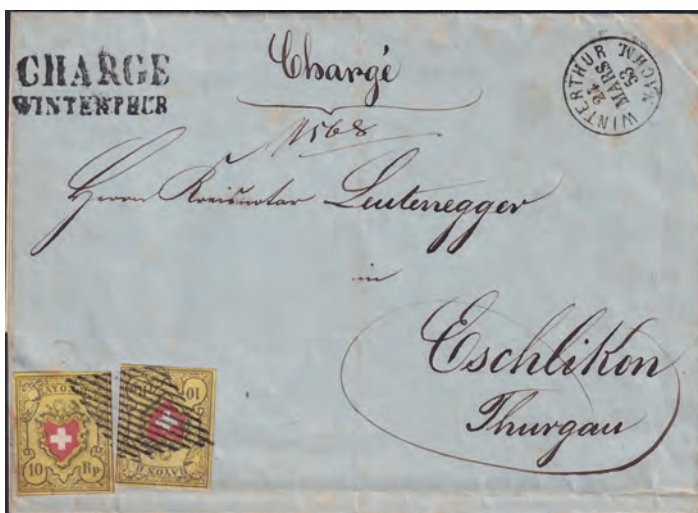 CHARGE
WINTERTHUR
Chargé
1568
WINTERTHUR
24
MARS
53
NACHM
Herrn Kreisnotar Leutenegger
in
Eschlikon
Thurgau
RAYON
10 Rp
10
RAYON II